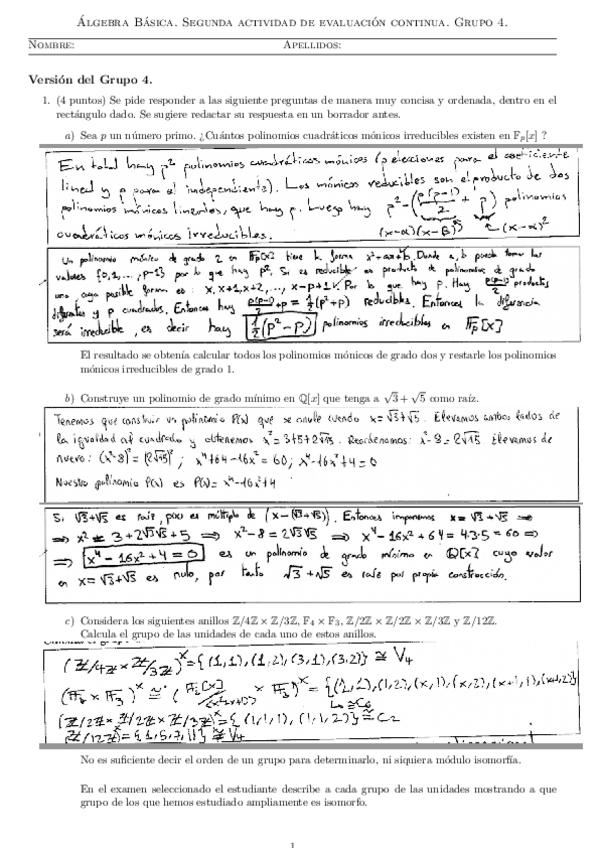 Álgebra Básica. Segunda actividad de evaluación continua. Grupo 4.
Nombre: Apellidos:
Versión del Grupo 4.
1. (4 puntos) Se pide responder a las siguiente preguntas de manera muy concisa y ordenada, dentro en el
rectángulo dado. Se sugiere redactar su respuesta en un borrador antes.
a) Sea p un número primo. ¿Cuántos polinomios cuadráticos mónicos irreducibles existen en 𝔽ₚ[x] ?
En total hay p² polinomios cuadráticos mónicos (p elecciones para el coeficiente
lineal y p para el independiente). Los mónicos reducibles son el producto de dos
polinomios mónicos lineales, que hay p. Luego hay p² - (p(p-1)/2 + p) polinomios
cuadráticos mónicos irreducibles. (x-α)(x-β) (x-α)²
Un polinomio mónico de grado 2 en 𝔽ₚ[x] tiene la forma x²+ax+b. Donde a, b puede tomar los
valores {0,1,...,p-1} por lo que hay p². Si es reducible es producto de polinomios de grado
uno cuya posible forma es: x, x+1, x+2, ..., x-p+1. Por lo que hay p. Hay p(p-1)/2 productos
diferentes y p cuadrados. Entonces hay p(p-1)/2 + p = ½(p²+p) reducibles. Entonces la diferencia
será irreducible, es decir hay ½(p²-p) polinomios irreducibles en 𝔽ₚ[x]
El resultado se obtenía calcular todos los polinomios mónicos de grado dos y restarle los polinomios
mónicos irreducibles de grado 1.
b) Construye un polinomio de grado mínimo en ℚ[x] que tenga a √3 + √5 como raíz.
Tenemos que construir un polinomio P(x) que se anule cuando x=√3+√5. Elevamos ambos lados de
la igualdad al cuadrado y obtenemos x²=3+5+2√15. Reordenamos: x²-8=2√15. Elevamos de
nuevo: (x²-8)²=(2√15)²; x⁴+64-16x²=60; x⁴-16x²+4=0
Nuestro polinomio P(x) es P(x)=x⁴-16x²+4
Si √3+√5 es raíz, p(x) es múltiplo de (x-(√3+√5)). Entonces imponemos x=√3+√5 ⟹
⟹ x² = 3+2√3√5+5 ⟹ x²-8=2√3√5 ⟹ x⁴-16x²+64=4·3·5=60 ⟹
⟹ x⁴-16x²+4=0 es un polinomio de grado mínimo en ℚ[x] cuyo valor
en x=√3+√5 es nulo, por tanto √3+√5 es raíz por propia construcción.
c) Considera los siguientes anillos ℤ/4ℤ × ℤ/3ℤ, 𝔽₄ × 𝔽₃, ℤ/2ℤ × ℤ/2ℤ × ℤ/3ℤ y ℤ/12ℤ.
Calcula el grupo de las unidades de cada uno de estos anillos.
(ℤ/4ℤ × ℤ/3ℤ)ˣ = {(1,1),(1,2),(3,1),(3,2)} ≅ V₄
(𝔽₄ × 𝔽₃)ˣ ≅ (𝔽₂[x]/(x²+x+1) × 𝔽₃)ˣ = {(1,1),(1,2),(x,1),(x,2),(x+1,1),(x+1,2)}
≅ C₆
(ℤ/2ℤ × ℤ/2ℤ × ℤ/3ℤ)ˣ = {(1,1,1),(1,1,2)} ≅ C₂
(ℤ/12ℤ)ˣ = {1,5,7,11} ≅ V₄
No es suficiente decir el orden de un grupo para determinarlo, ni siquiera módulo isomorfía.
En el examen seleccionado el estudiante describe a cada grupo de las unidades mostrando a que
grupo de los que hemos estudiado ampliamente es isomorfo.
1